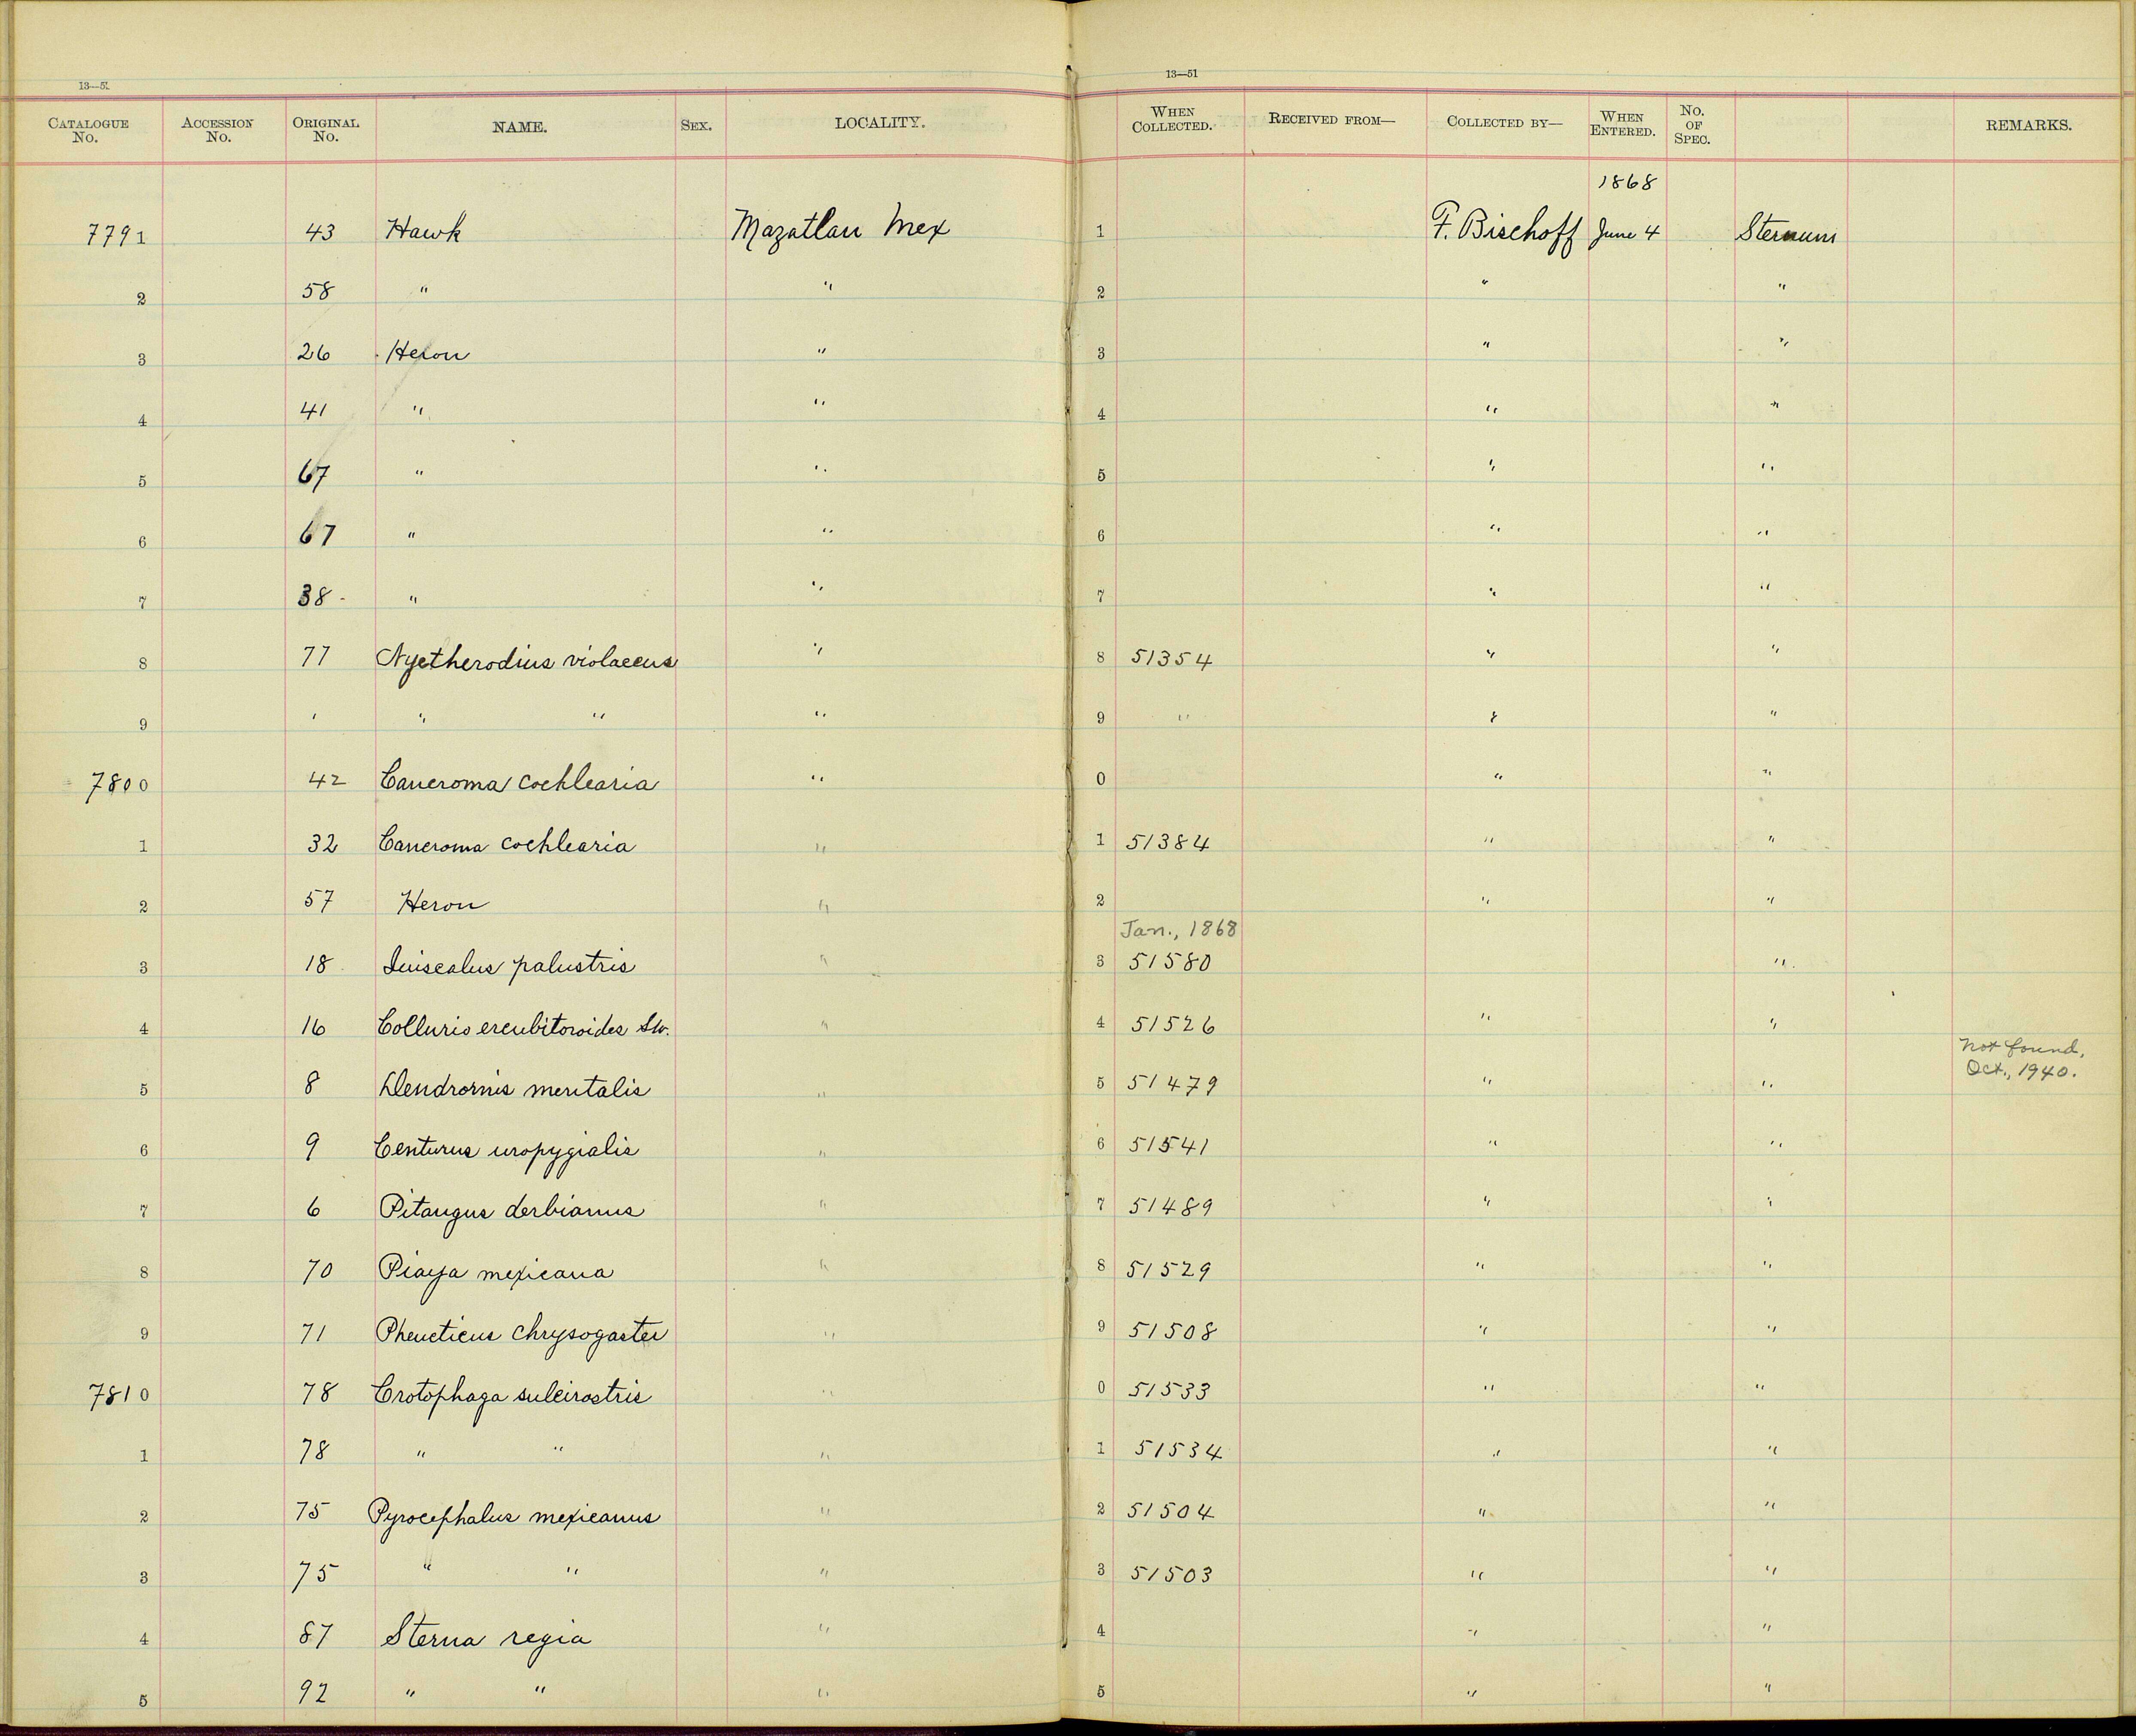 13—51
13—51
CATALOGUE No. ACCESSION No. ORIGINAL No. NAME. SEX. LOCALITY. WHEN COLLECTED. RECEIVED FROM— COLLECTED BY— WHEN ENTERED. No. OF SPEC. REMARKS.
1868
7791 43 Hawk Mazatlan Mex 1 F. Bischoff June 4 Sternum
2 58 " " 2 " "
3 26 Heron " 3 " "
4 41 " " 4 " "
5 67 " " 5 " "
6 67 " " 6 " "
7 38 - " " 7 " "
8 77 Nyctherodius violaceus " 8 51354 " "
9 ' " " " 9 " " "
7800 42 Cancroma cochlearia " 0 " "
1 32 Cancroma cochlearia " 1 51384 " "
2 57 Heron " 2 " "
Jan., 1868
3 18 Quiscalus palustris " 3 51580 "
4 16 Collurio excubitoroides Sw. " 4 51526 " "
Not found,
Oct., 1940.
5 8 Dendrornis mentalis " 5 51479 " "
6 9 Centurus uropygialis " 6 51541 " "
7 6 Pitangus derbianus " 7 51489 " "
8 70 Piaya mexicana " 8 51529 " "
9 71 Pheucticus chrysogaster " 9 51508 " "
7810 78 Crotophaga sulcirostris " 0 51533 " "
1 78 " " " 1 51534 " "
2 75 Pyrocephalus mexicanus " 2 51504 " "
3 75 " " " 3 51503 " "
4 87 Sterna regia " 4 " "
5 92 " " " 5 " "